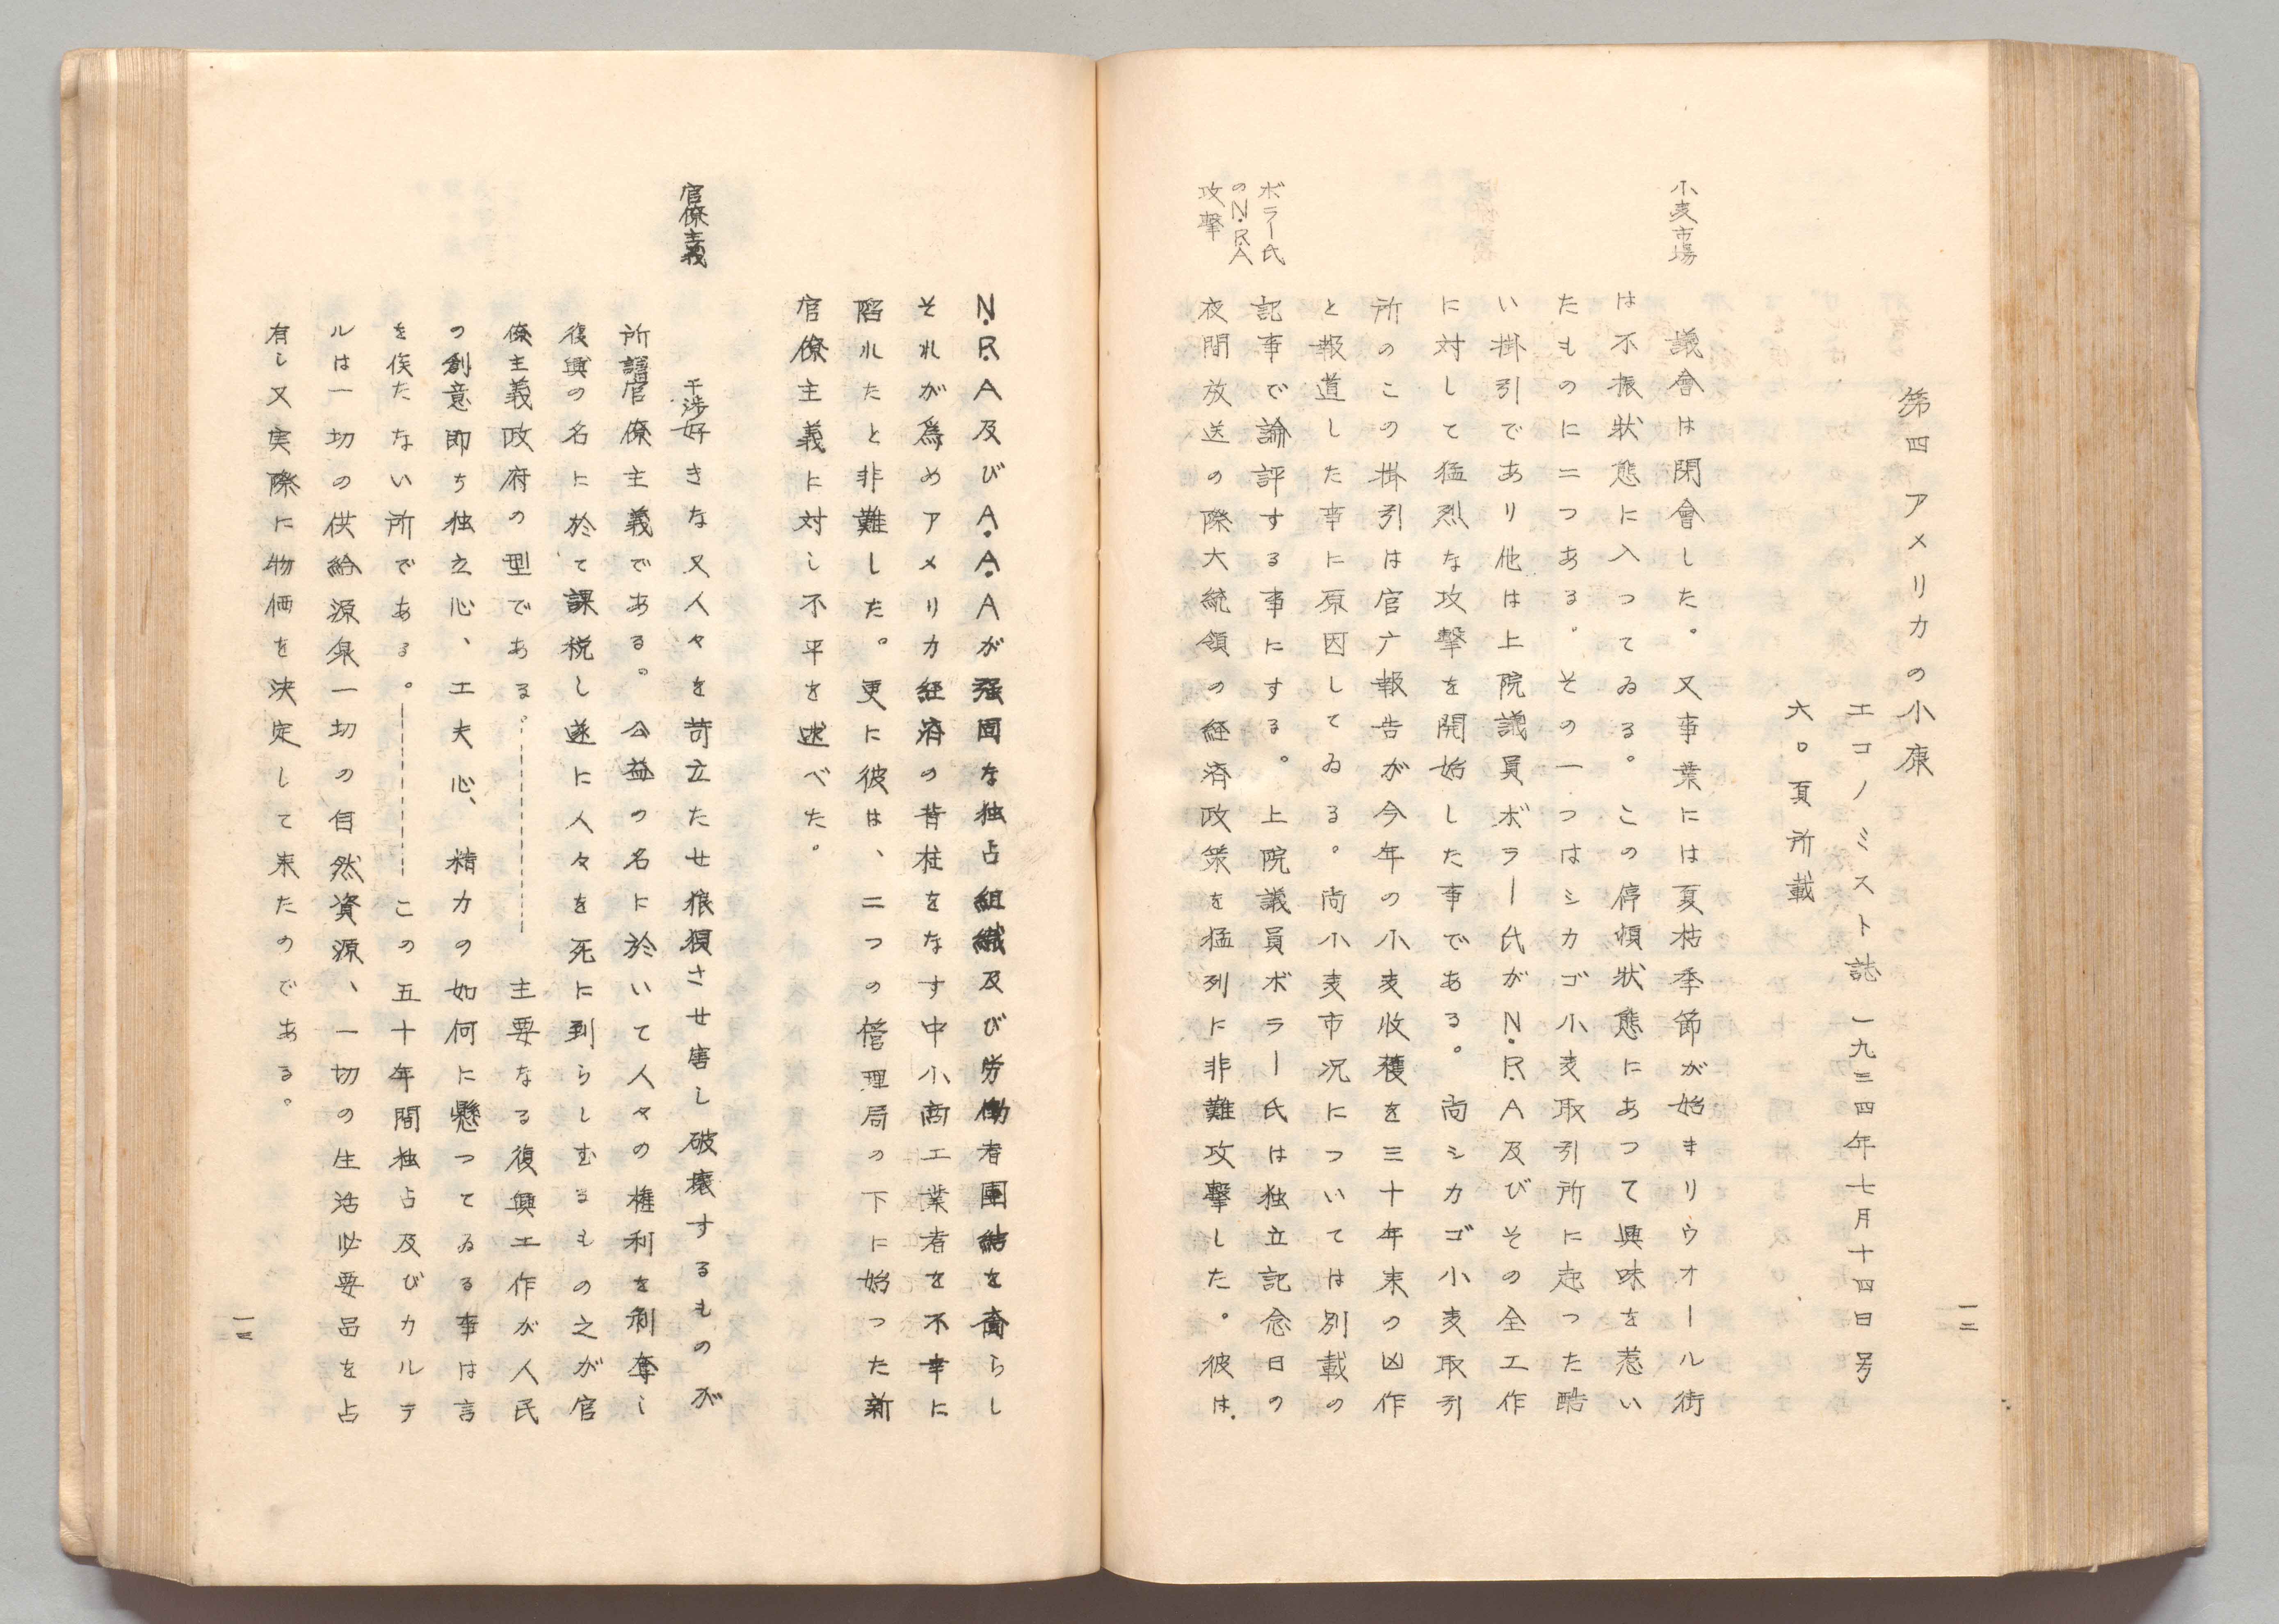 一二
第四　アメリカの小康
エコノミスト誌　一九三四年七月十四日号
六〇頁所載
小麦市場
議會は閉會した。又事業には夏枯季節が始まりウオール街
は不振狀態に入つてゐる。この停頓狀態にあつて興味を惹い
たものに二つある。その一つはシカゴ小麦取引所に起つた酷
い掛引であり他は上院議員ボラー氏がN.R.A及びその全工作
に対して猛烈な攻撃を開始した事である。尚シカゴ小麦取引
所のこの掛引は官庁報告が今年の小麦收穫を三十年来の凶作
と報道した事に原因してゐる。尚小麦市況については別載の
ボラー氏
のN.R.A
攻撃
記事で論評する事にする。上院議員ボラー氏は独立記念日の
夜間放送の際大統領の経済政策を猛列に非難攻撃した。彼は
N.R.A及びA.A.Aが强固な独占組織及び労働者團結を齎らし
それが爲めアメリカ経済の背柱をなす中小商工業者を不幸に
陥れたと非難した。更に彼は、二つの管理局の下に始つた新
官僚主義に対し不平を述べた。
官僚主義
干渉好きな又人々を苛立たせ狼狽させ害し破壊するものが
所謂官僚主義である。公益の名に於いて人々の権利を剥奪し
復興の名に於て課税し遂に人々を死に到らしむるもの之が官
僚主義政府の型である。---------主要なる復興工作が人民
の創意即ち独立心、工夫心、精力の如何に懸つてゐる事は言
を俟たない所である。---------この五十年間独占及びカルテ
ルは一切の供給源泉一切の自然資源、一切の生活必要品を占
有し又実際に物価を決定して来たのである。
一三